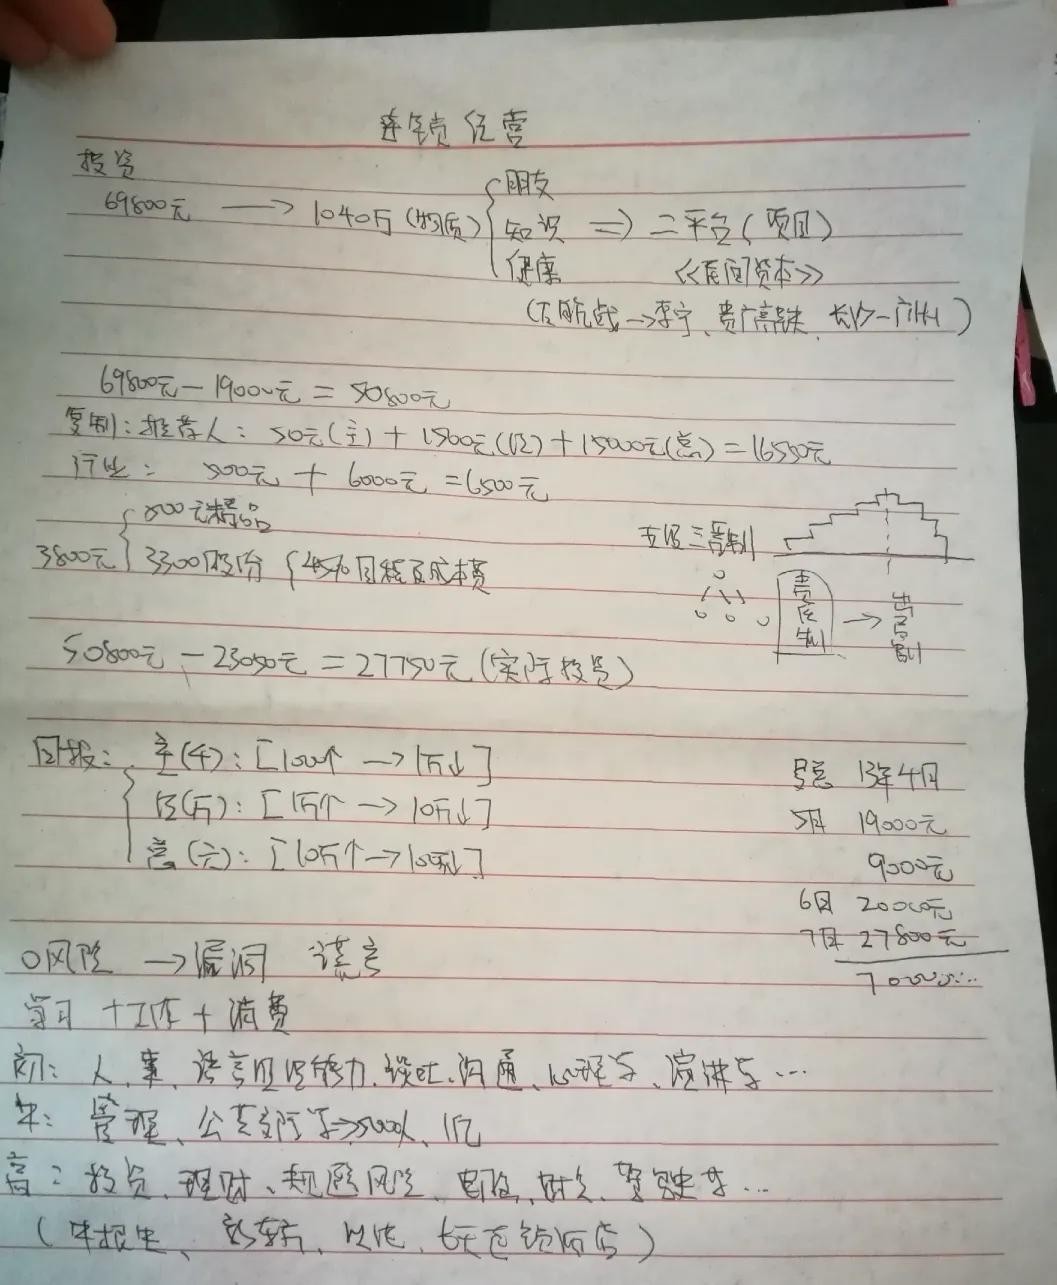 连锁经营
投资
69800元 → 1040万(物质) { 朋友
知识 ⇒ 二平台(项目)
健康 《民间资本》
→李宁、贵广高铁
69800元-19000元=50800元
复制:推荐人:50元(主)+1500元(经)+15000元(总)=16550元
行业: 500元+6000元=6500元
3800元 { 500元精品
3300股份 { 45%
五级三晋制
责任制 →
50800元-23050元=27750元(实际投资)
回报: 主(千):[100个→1万↓]
经(万):[1万个→10万↓]
总(元):[10万个→
13年4月
5月 19000元
9000元
6月 20000元
7月 27800元
0风险 →漏洞 谎言
学习+工作+消费
初:人、事、语言组织能力、谈吐、沟通、心理学、演讲学…
中:管理、公益 5000人、1亿
高:投资、理财、规避风险、驾驶等…